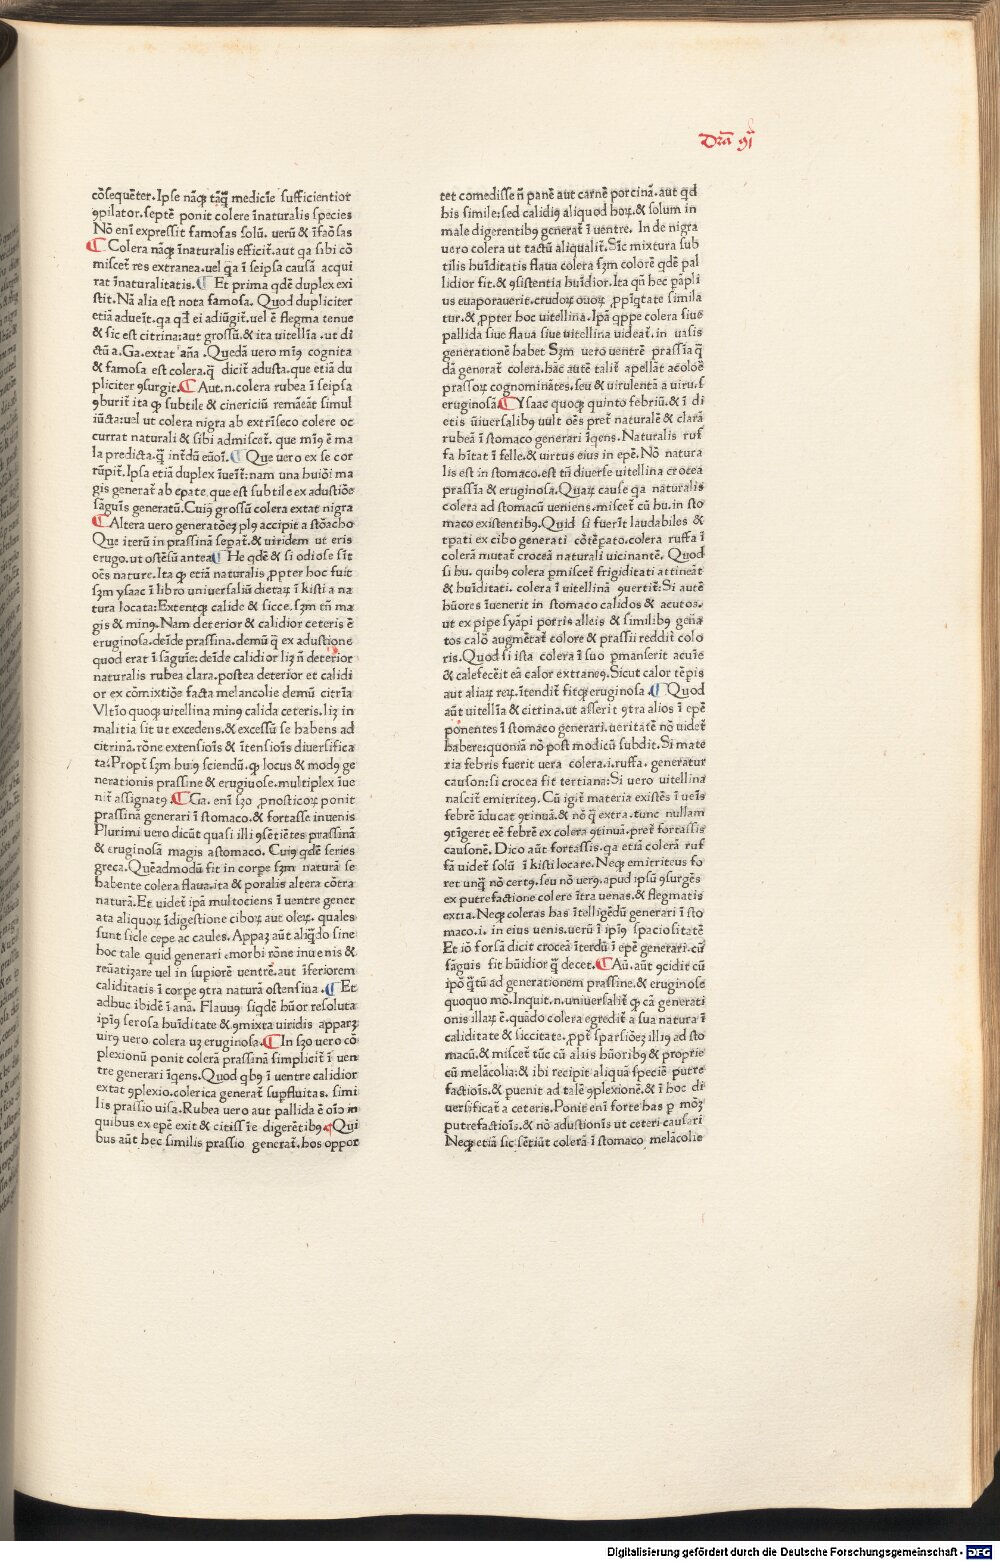 Dr̄a 91
cōsequēter. Ipse nāqꝫ tāqꝫ̄ medicīe sufficientior
ꝯpilator. septē ponit colere īnaturalis species
Nō enī expressit famosas solū. verū & īfāōsas
Colera nāqꝫ īnaturalis efficit̄. aut qa sibi cō
miscet̄ res extranea. vel qa ī seipsa causā acqui
rat īnaturalitatis. Et prima qdē duplex exi
stit. Nā alia est nota famosa. Quod dupliciter
etiā adueīt. qa qd̄ ei adiūgit̄. uel ē flegma tenue
& sic est citrina: aut grossū. & ita vitellīa. ut di
ctū a. Ga. extat añā. Quedā vero minꝰ cognita
& famosa est colera. q̄ dicit̄ adusta. que etiā du
pliciter ꝯsurgit. Aut. n. colera rubea ī seipsa
ꝯburit̄ ita ꝙ subtile & cinericiū remāeāt simul
iūcta: uel ut colera nigra ab extrīseco colere oc
currat naturali & sibi admiscet̄. que minꝰ ē ma
la predicta. q̄ intdū euōī. Que uero ex se cor
rūpit̄. Ipsa etiā duplex īueīt̄: nam una huiōi ma
gis generat̄ ab epate que est subtile ex adustiōe
sāguīs generatū. Cuiꝰ grossū colera extat nigra
Altera uero generatōeꝫ plꝰ accipit a stōacho
Que iterū in prassinā sepat̄. & uiridem ut eris
erugo. ut ostēsū antea. He qdē & si odiose sīt
oēs nature. Ita ꝙ etiā naturalis ꝓpter hoc fuit
sꝫm ysaac ī libro uniuersaliū dietaꝝ ī kisti a na
tura locata: Extentqꝫ calide & sicce. sꝫm tn̄ ma
gis & minꝰ. Nam deterior & calidior ceteris ē
eruginosa. deīde prassina. demū q̄ ex adustione
quod erat ī sāguīe: deīde calidior lꝫ n̄ deterior
naturalis rubea clara. postea deterior et calidi
or ex cōmixtiōe facta melancolie demū citrīa
Vltīo quoqꝫ uitellina minꝰ calida ceteris. lꝫ in
malitia sit ut excedens. & excessū se habens ad
citrinā. rōne extensiōis & ītensiōis diuersifica
ta: Propt̄ sꝫm huiꝰ sciendū. ꝙ locus & modꝰ ge
nerationis prassine & erugiuose. multiplex īue
nit̄ assignatꝰ. Ga. enī sꝫo ꝓnosticoꝝ ponit
prassinā generari ī stomaco. & fortasse inuenis
Plurimi uero dicūt quasi illi ꝯsētiētes prassinā
& eruginosā magis astomaco. Cuiꝰ qdē series
greca. Quēadmodū fit in corpe sꝫm naturā se
habente colera flaua. ita & poralis altera cōtra
naturā. Et uidet̄ ipā multociens ī uentre gener
ata aliquoꝝ īdigestione ciboꝝ aut oleꝝ. quales
sunt sicle cepe ac caules. Appaꝫ aūt aliqd̄o sine
hoc tale quid generari e morbi rōne inuenis &
reūatizare uel in supiorē uentrē. aut īferiorem
caliditatis ī corpe ꝯtra naturā ostensiua. Et
adhuc ibidē ī anā. Flauuꝰ siqdē hūor resoluta
ipiꝰ serosa huīditate & ꝯmixta uiridis apparꝫ
uirꝰ uero colera uꝫ eruginosa. In sꝫo uero cō
plexionū ponit colerā prassinā simplicit̄ ī uen
tre generari īqens. Quod qbꝰ ī uentre calidior
extat ꝯplexio. colerica generat̄ supfluitas. simi
lis prassio uisa. Rubea uero aut pallida ē oīo in
quibus ex epē exit & citissīe digerētibꝰ. Qui
bus aūt hec similis prassio generat̄. hos oppor
tet comedisse n̄ panē aut carnē porcinā. aut qd
his simile: sed calidiꝰ aliquod hoꝝ. & solum in
male digerentibꝰ generat̄ ī uentre. In de nigra
uero colera ut tactū aliqualit̄. Sīc mixtura sub
tilis huīditatis flaua colera sꝫm colorē qdē pal
lidior fit. & ꝯsistentia huīdior. Ita qn̄ hec papli
us euaporauerit. crudoꝝ ouoꝝ ꝓpīqtate simila
tur. & ꝓpter hoc vitellina. Ipā qppe colera siue
pallida siue flaua siue uitellina uideat̄. in uasis
generationē habet Sꝫm uero uentrē prassīa q̄
dā generat̄ colera. hāc autē talit̄ apellāt acoloē
prassoꝝ cognominātes. seu & uirulentā a uiru. s̄
eruginosā. Ysaac quoqꝫ quinto febriū. & ī di
etis ūiuersalibꝰ uult oēs pret̄ naturalē & clarā
rubeā ī stomaco generari īqens. Naturalis ruf
fa hītat ī felle. & uirtus eius in epē. Nō natura
lis est in stomaco. est tn̄ diuerse uitellina crocea
prassīa & eruginosa. Quaꝝ cause qa naturalis
colera ad stomacū ueniens. miscet̄ cū hu. in sto
maco existentibꝰ. Quid si fuerīt laudabiles &
tpati ex cibo generati cōtēpato. colera ruffa ī
colerā mutat̄ croceā naturali uicinantē. Quod
si hu. quibꝰ colera pmiscet̄ frigiditati attineāt
& huīditati. colera ī uitellinā ꝯuertit̄: Si autē
hūores īuenerit in stomaco calidos & acutos.
ut ex pipe syapi porris alleis & similibꝰ gena
tos calō augmētat̄ colore & prassii reddit̄ colo
ris. Quod si ista colera ī suo pmanserit acuīe
& calefecēit eā calor extraneꝰ. Sicut calor tēpis
aut aliaꝝ reꝝ. ītendit̄ fitqꝫ eruginosa. Quod
aūt uitellīa & citrina. ut asserit ꝯtra alios ī epē
ponentes ī stomaco generari. ueritatē nō uidet̄
habere: quoniā nō post modicū subdit. Si mate
ria febris fuerit uera colera. i. ruffa. generatur
causon: si crocea fit tertiana: Si uero uitellina
nascit̄ emitriteꝰ. Cū igit̄ materia existēs ī ueīs
febrē īducat ꝯtinuā. & nō q̄ extra. tunc nullam
ꝯtīgeret eē febrē ex colera ꝯtinuā. pret̄ fortassis
causonē. Dico aūt fortassis. qa etiā colerā ruf
fā uidet̄ solū ī kisti locare. Neqꝫ emitriteus fo
ret unq̄ nō certꝰ. seu nō uerꝰ. apud ipsū ꝯsurgēs
ex putrefactione colere ītra uenas. & flegmatis
extra. Neqꝫ coleras has ītelligēdū generari ī sto
maco. i. in eius uenis. uerū ī ipiꝰ spaciositatē
Et iō forsā dicit croceā īterdū ī epē generari. cū
sāguis fit hūidior q̄ decet. Au. aūt ꝯcidit cū
ipō q̄tū ad generationem prassine. & eruginose
quoquo mō. Inquit. n. uniuersalit̄ ꝙ cā generati
onis illaꝝ ē. quādo colera egredit̄ a sua natura ī
caliditate & siccitate. ꝓpt̄ sparsiōeꝫ illiꝰ ad sto
macū. & miscet̄ tūc cū aliis hūoribꝰ & proprie
cū melācolia: & ibi recipit aliquā speciē putre
factiōis. & puenit ad talē ꝯplexionē. & ī hoc di
uersificat̄ a ceteris. Ponit enī forte has p moꝫ
putrefactiōis. & nō adustionis ut ceteri causari
Neqꝫ etiā sic sētiūt colerā ī stomaco melācolie
Digitalisierung gefördert durch die Deutsche Forschungsgemeinschaft - DFG